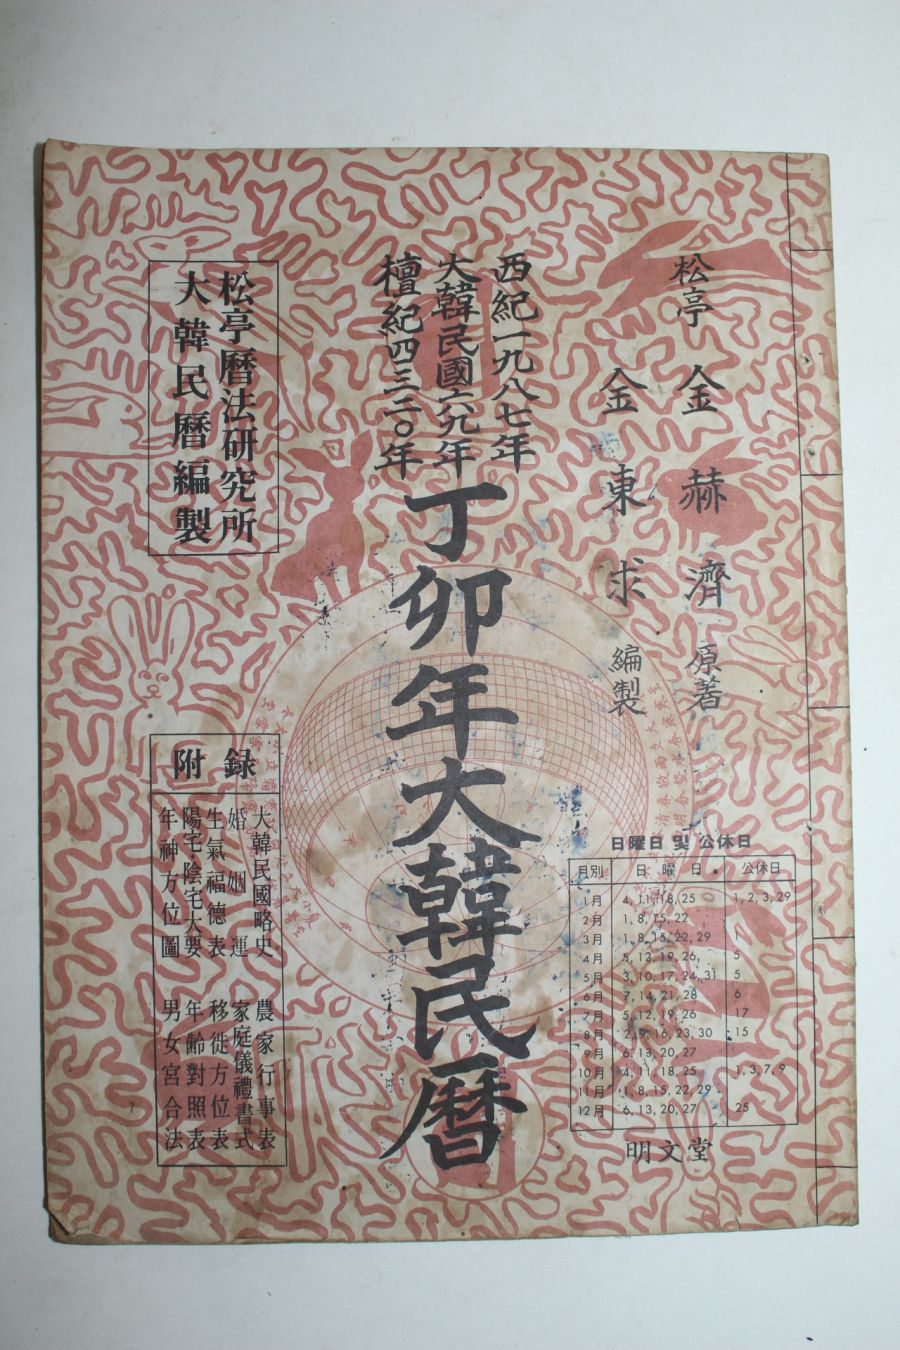 松亭 金赫濟 原著
金東求 編製
西紀一九八七年
大韓民國六九年
檀紀四三二〇年
丁卯年大韓民曆
松亭曆法研究所
大韓民曆編製
附錄
大韓民國略史 農家行事表
婚姻運 家庭儀禮書式
生氣福德表 移徙方位表
陽宅·陰宅大要 年齡對照表
年神方位圖 男女宮合法
日曜日 및 公休日
月別 日曜日 公休日
1月 4, 11, 18, 25 1, 2, 3, 29
2月 1, 8, 15, 22
3月 1, 8, 15, 22, 29 1
4月 5, 12, 19, 26, 5
5月 3, 10, 17, 24, 31 5
6月 7, 14, 21, 28 6
7月 5, 12, 19, 26 17
8月 2, 9, 16, 23, 30 15
9月 6, 13, 20, 27
10月 4, 11, 18, 25 1, 3, 7, 9
11月 1, 8, 15, 22, 29
12月 6, 13, 20, 27 25
明文堂